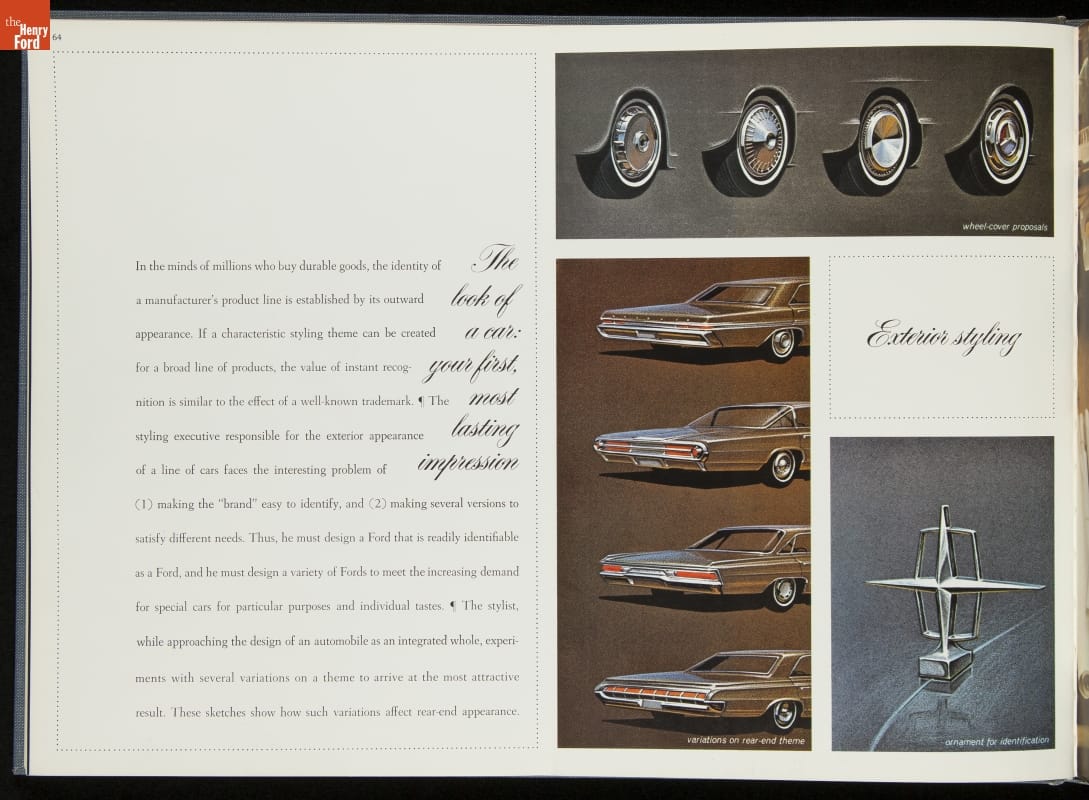 the
Henry
Ford
64
The
look of
a car:
your first,
most
lasting
impression
In the minds of millions who buy durable goods, the identity of
a manufacturer's product line is established by its outward
appearance. If a characteristic styling theme can be created
for a broad line of products, the value of instant recog-
nition is similar to the effect of a well-known trademark. ¶ The
styling executive responsible for the exterior appearance
of a line of cars faces the interesting problem of
(1) making the "brand" easy to identify, and (2) making several versions to
satisfy different needs. Thus, he must design a Ford that is readily identifiable
as a Ford, and he must design a variety of Fords to meet the increasing demand
for special cars for particular purposes and individual tastes. ¶ The stylist,
while approaching the design of an automobile as an integrated whole, experi-
ments with several variations on a theme to arrive at the most attractive
result. These sketches show how such variations affect rear-end appearance.
wheel-cover proposals
Exterior styling
variations on rear-end theme
ornament for identification